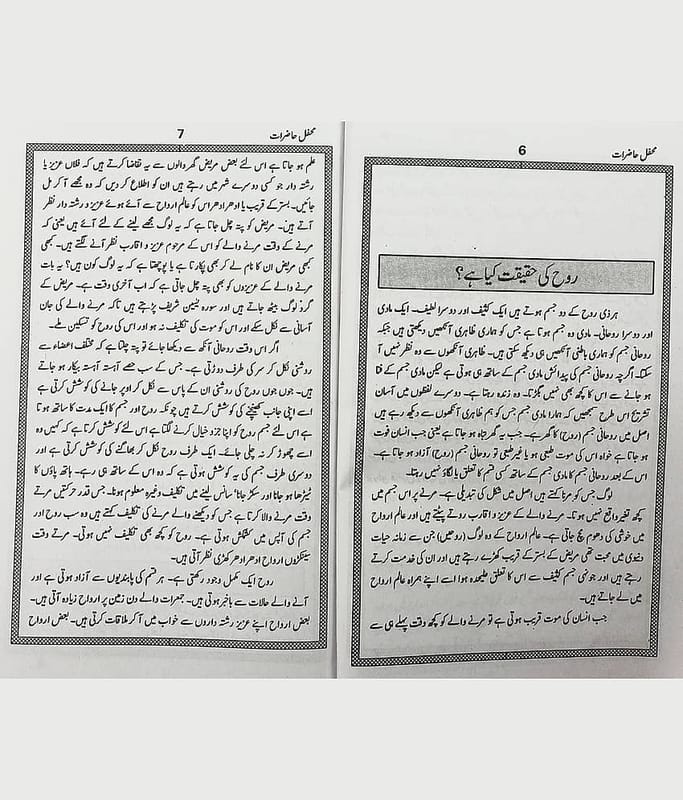 محفل حاضرات
6
روح کی حقیقت کیا ہے؟
ہر ذی روح کے دو جسم ہوتے ہیں ایک کثیف اور دوسرا لطیف۔ ایک مادی
اور دوسرا روحانی۔ مادی وہ جسم ہوتا ہے جس کو ہماری ظاہری آنکھیں دیکھتی ہیں جبکہ
روحانی جسم کو ہماری باطنی آنکھیں ہی دیکھ سکتی ہیں۔ ظاہری آنکھوں سے وہ نظر نہیں آ
سکتا۔ اگرچہ روحانی جسم کی پیدائش مادی جسم کے ساتھ ہی ہوتی ہے لیکن مادی جسم کے فنا
ہو جانے سے اس کا کچھ بھی نہیں بگڑتا۔ وہ زندہ رہتا ہے۔ دوسرے لفظوں میں آسان
تشریح اس طرح سمجھیں کہ ہمارا مادی جسم جس کو ہم ظاہری آنکھوں سے دیکھ رہے ہیں
اصل میں روحانی جسم (روح) کا گھر ہے۔ جب یہ گھر تباہ ہو جاتا ہے یعنی جب انسان فوت
ہو جاتا ہے خواہ اس کی موت طبعی ہو یا غیر طبعی تو روحانی جسم (روح) آزاد ہو جاتا ہے۔
اس کے بعد روحانی جسم کا مادی جسم کے ساتھ کسی قسم کا تعلق یا لگاؤ نہیں رہتا۔
لوگ جس کو مرنا کہتے ہیں اصل میں شکل کی تبدیلی ہے۔ مرنے پر اس جسم میں
کچھ تغیر واقع نہیں ہوتا۔ مرنے والے کے عزیز و اقارب روتے پیٹتے ہیں اور عالم ارواح
میں خوشی کی دھوم مچ جاتی ہے۔ عالم ارواح کے وہ لوگ (روحیں) جن سے زمانہ حیات
دنیوی میں محبت تھی مریض کے بستر کے قریب کھڑے رہتے ہیں اور ان کی خدمت کرتے
رہتے ہیں اور جونہی جسم کثیف سے اس کا تعلق علیحدہ ہوا اسے اپنے ہمراہ عالم ارواح
میں لے جاتے ہیں۔
جب انسان کی موت قریب ہوتی ہے تو مرنے والے کو کچھ وقت پہلے ہی سے
محفل حاضرات
7
علم ہو جاتا ہے اس لئے بعض مریض گھر والوں سے یہ تقاضا کرتے ہیں کہ فلاں عزیز یا
رشتہ دار جو کسی دوسرے شہر میں رہتے ہیں ان کو اطلاع کر دیں کہ وہ مجھے آ کر مل
جائیں۔ بستر کے قریب یا ادھر ادھر اس کو عالم ارواح سے آئے ہوئے عزیز و رشتہ دار نظر
آتے ہیں۔ مریض کو پتہ چل جاتا ہے کہ یہ لوگ مجھے لینے کے لئے آئے ہیں یعنی کہ
مرنے کے وقت مرنے والے کو اس کے مرحوم عزیز و اقارب نظر آنے لگتے ہیں۔ کبھی
کبھی مریض ان کا نام لے کر بھی پکارتا ہے یا پوچھتا ہے کہ یہ لوگ کون ہیں؟ یہ بات
مرنے والے کے عزیزوں کو بھی پتہ چل جاتی ہے کہ اب آخری وقت ہے۔ مریض کے
گرد لوگ بیٹھ جاتے ہیں اور سورہ یٰسین شریف پڑھتے ہیں تاکہ مرنے والے کی جان
آسانی سے نکل سکے اور اس کو موت کی تکلیف نہ ہو اور اس کی روح کو تسکین ملے۔
اگر اس وقت روحانی آنکھ سے دیکھا جائے تو پتہ چلتا ہے کہ مختلف اعضاء سے
روشنی نکل کر سر کی طرف دوڑتی ہے۔ جس کے سب حصے آہستہ آہستہ بیکار ہو جاتے
ہیں۔ جوں جوں روح کی روشنی ان کے پاس سے نکل کر اوپر جانے کی کوشش کرتی ہے
اسے اپنی جانب کھینچنے کی کوشش کرتے ہیں چونکہ روح اور جسم کا ایک مدت کا ساتھ ہوتا
ہے اس لئے جسم روح کو اپنا جزو خیال کرنے لگتا ہے اس لئے کوشش کرتا ہے کہ کہیں وہ
اسے چھوڑ کر نہ چلی جائے۔ ایک طرف روح نکل کر بھاگنے کی کوشش کرتی ہے اور
دوسری طرف جسم کی یہ کوشش ہوتی ہے کہ وہ اس کے ساتھ ہی رہے۔ ہاتھ پاؤں کا
ٹیڑھا ہو جانا اور سکڑ جانا' سانس لینے میں تکلیف وغیرہ معلوم ہونا۔ جس قدر حرکتیں مرتے
وقت مرنے والا کرتا ہے جس کو دیکھنے والے مرنے کی تکلیف کہتے ہیں وہ سب روح اور
جسم کی آپس میں کشمکش ہوتی ہے۔ روح کو کچھ بھی تکلیف نہیں ہوتی۔ مرتے وقت
سینکڑوں ارواح ادھر ادھر کھڑی نظر آتی ہیں۔
روح ایک مکمل وجود رکھتی ہے۔ ہر قسم کی پابندیوں سے آزاد ہوتی ہے اور
آنے والے حالات سے باخبر ہوتی ہیں۔ جمعرات والے دن زمین پر ارواح زیادہ آتی ہیں۔
بعض ارواح اپنے عزیز رشتہ داروں سے خواب میں آ کر ملاقات کرتی ہیں۔ بعض ارواح